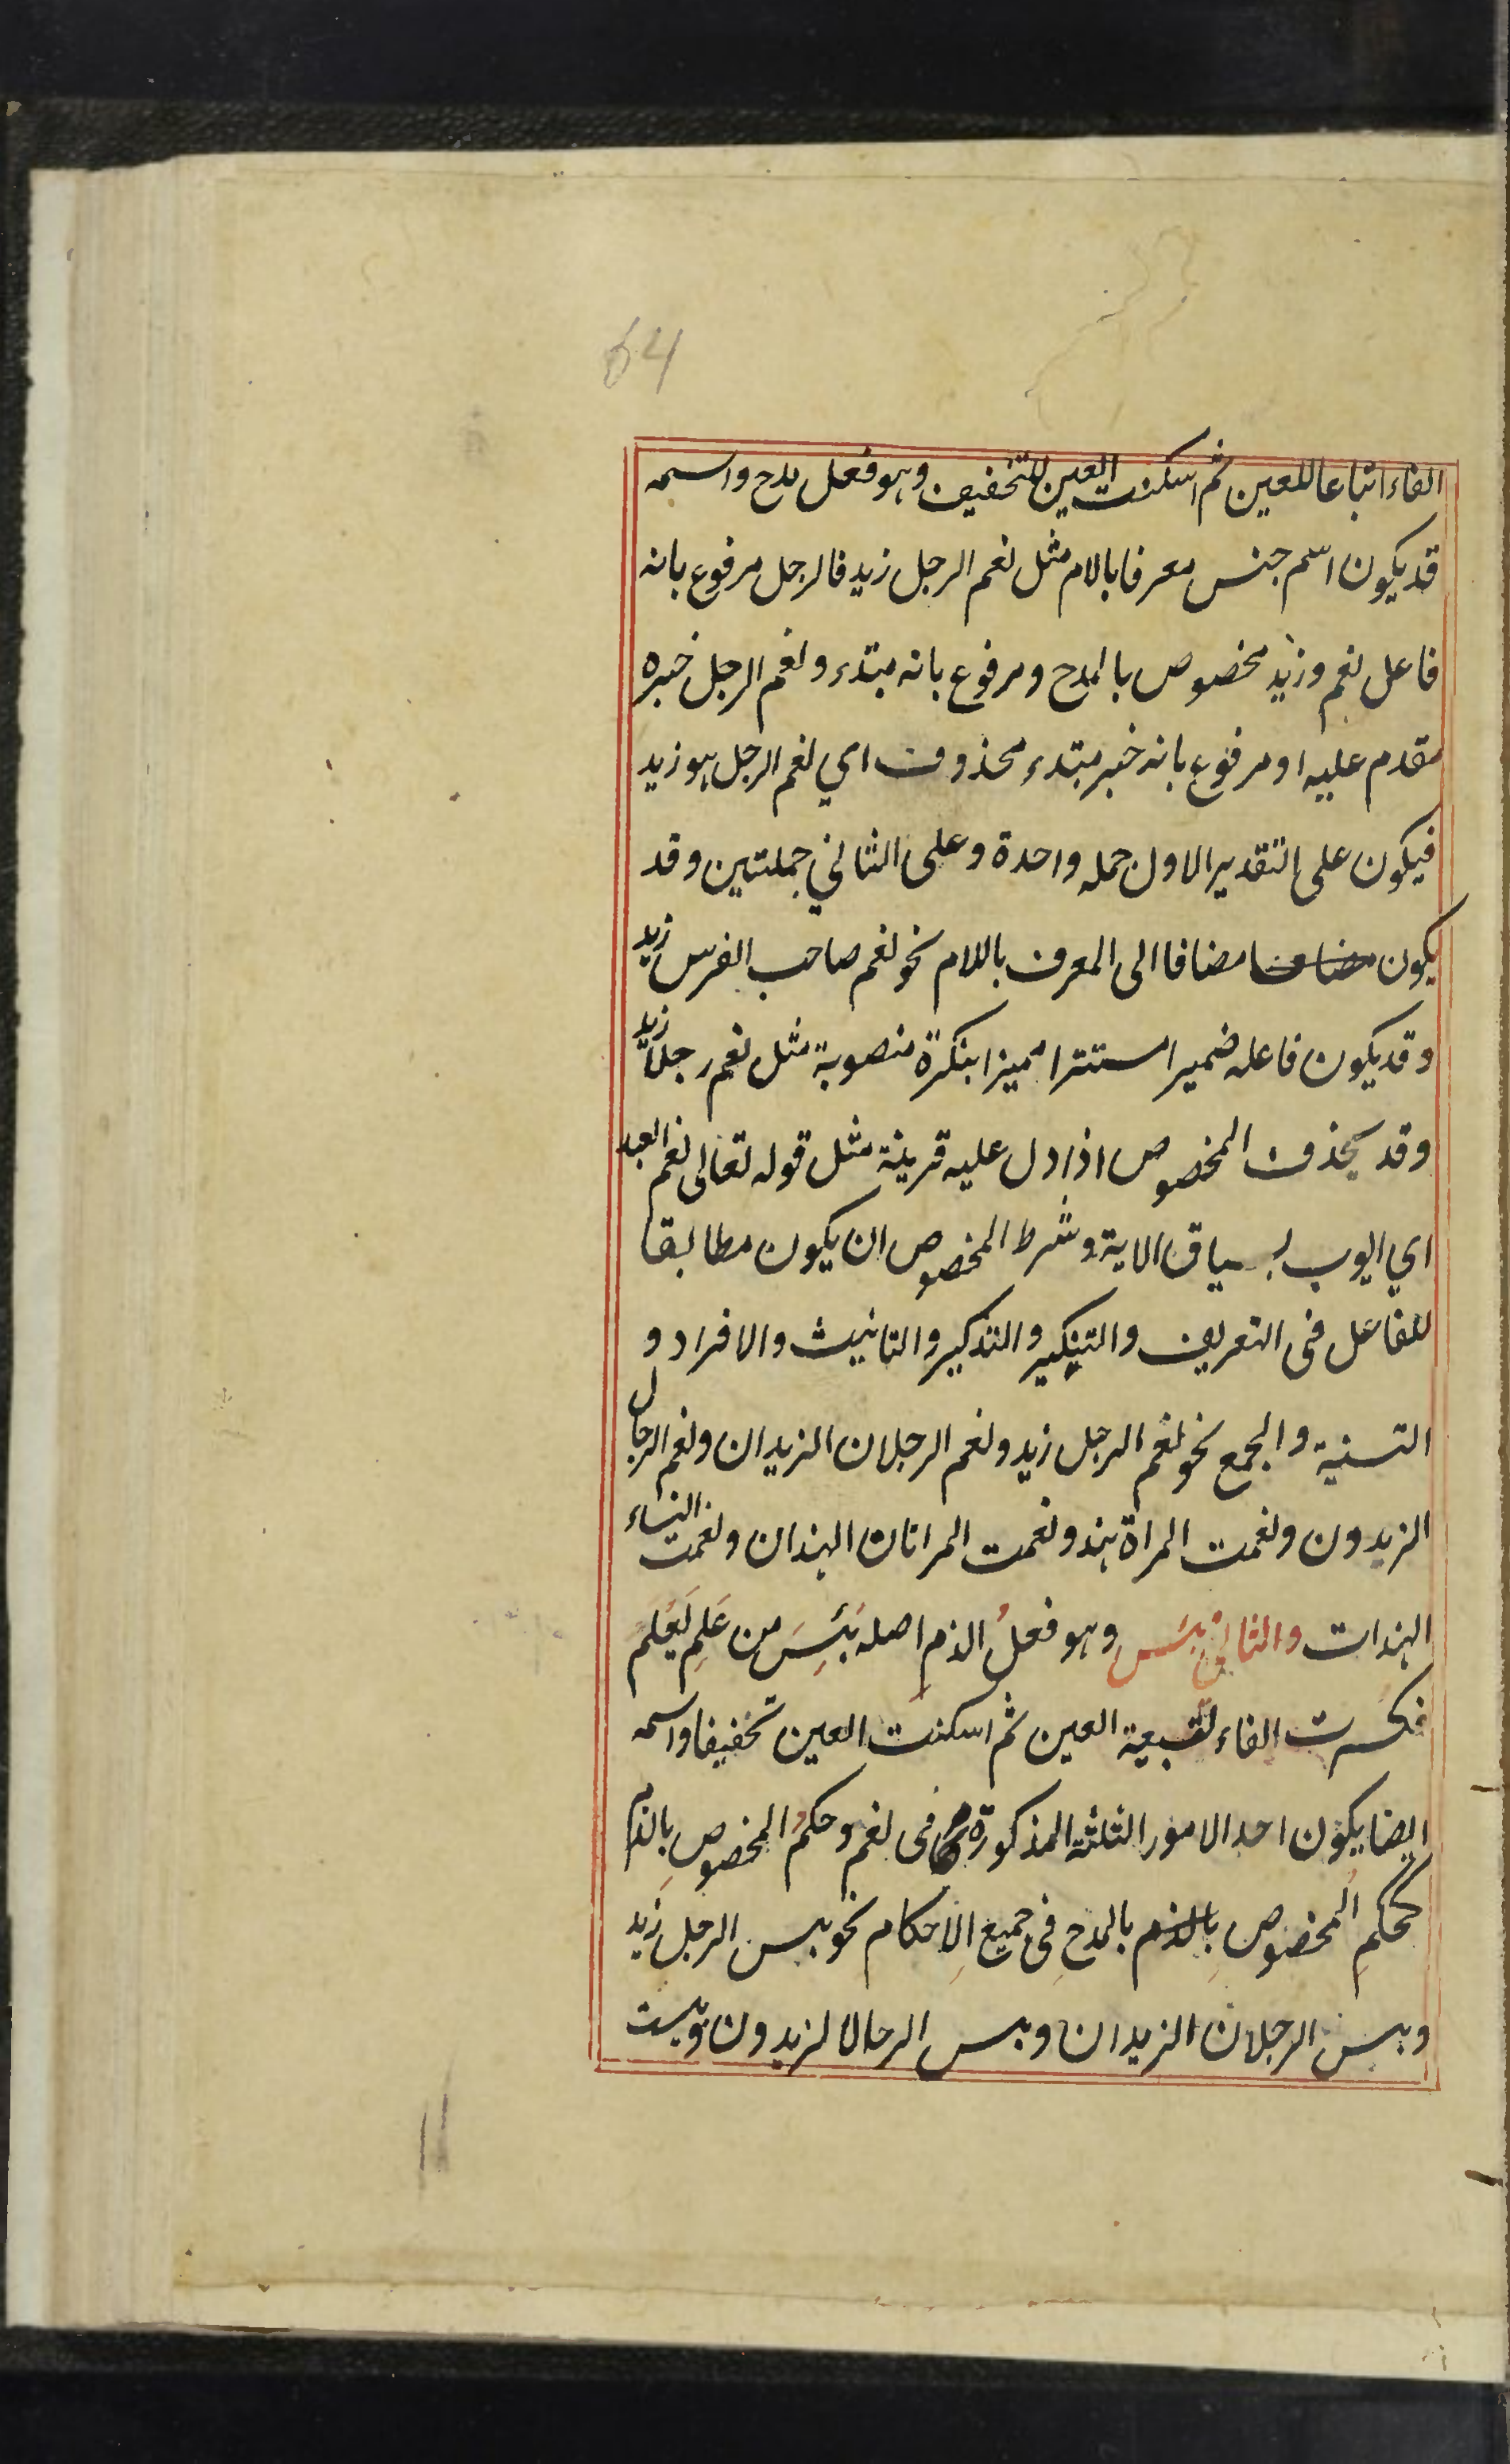 64
الفاء اتباعا للعين ثم اسكنت العين للتخفيف وهو فعل مدح واسمه
قد يكون اسم جنس معرفا بالام مثل نعم الرجل زيد فالرجل مرفوع بانه
فاعل نعم وزيد مخصوص بالمدح ومرفوع بانه مبتدء ونعم الرجل خبره
مقدم عليه او مرفوع بانه خبر مبتدء محذوف اي نعم الرجل هو زيد
فيكون على التقدير الاول جمله واحدة وعلى الثاني جملتين وقد
يكون مضافا الى المعرف باللام نحو نعم صاحب الفرس زيد
وقد يكون فاعله ضميرا مستترا مميزا بنكرة منصوبة مثل نعم رجلا زيد
وقد يحذف المخصوص اذا دل عليه قرينة مثل قوله تعالى نعم العبد
اي ايوب بسياق الاية وشرط المخصوص ان يكون مطابقا
للفاعل فى التعريف والتنكير والتذكير والتانيث والافراد و
التسنية والجمع نحو نعم الرجل زيد ونعم الرجلان الزيدان ونعم الرجال
الزيدون ونعمت المراة هند ونعمت المراتان الهندان ونعمت النساء
الهندات والثاني بئس وهو فعلُ الذم اصله بَئِسَ من عَلِمَ يَعْلَم
فكسرت الفاء لتبعية العين ثم اسكنت العين تخفيفا واسمه
ايضا يكون احد الامور الثلثة المذكورة فى نعم وحكمُ المخصوص بِالذم
كحكمِ المخصوص بِالذم بالمدحِ فِى جميعِ الاِحكام نحو بيس الرجل زيد
وبيس الرجلان الزيدان وبيس الرجال الزيدون وبيست